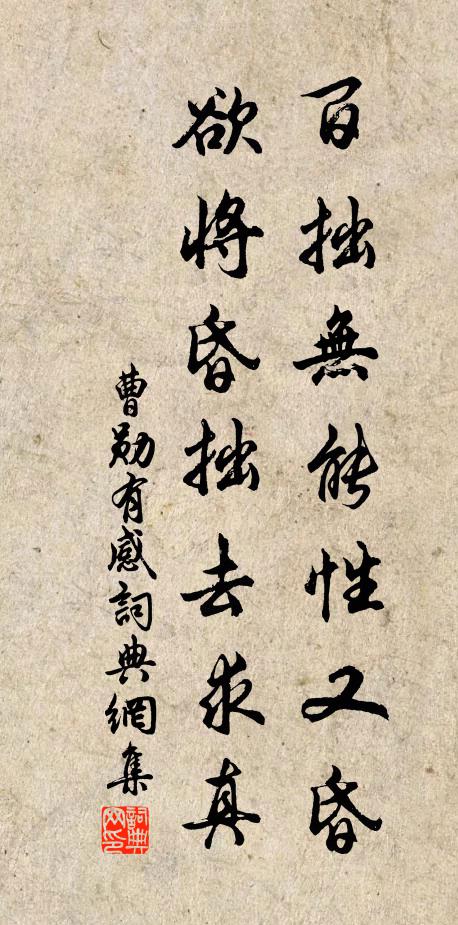 百拙無能性又昏
欲將昏拙去求真
曹勛有感詞典網集
詞典網印